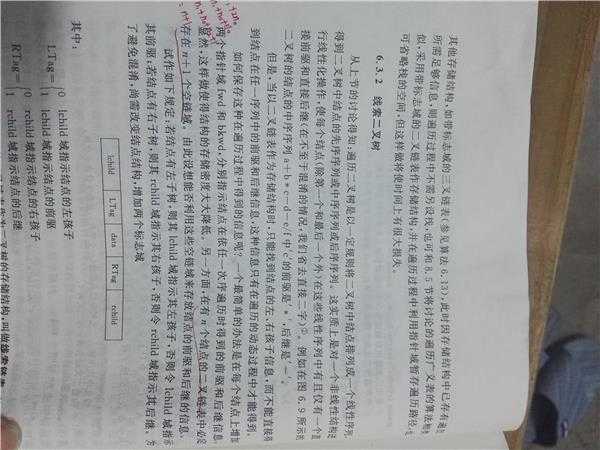 其他存储结构,如带标志域的三叉链表(参见算法 6.13),此时因存储结构中已存有遍
所需足够信息,则遍历过程中不需另设栈,也可和 8.5 节将讨论的遍历广义表的算法相
似,采用带标志域的二叉链表作存储结构,并在遍历过程中利用指针域暂存遍历路径,也
可省略栈的空间,但这样做将使时间上有很大损失。
6.3.2 线索二叉树
从上节的讨论得知:遍历二叉树是以一定规则将二叉树中结点排列成一个线性序列,
得到二叉树中结点的先序序列或中序序列或后序序列。这实质上是对一个非线性结构进
行线性化操作,使每个结点(除第一个和最后一个外)在这些线性序列中有且仅有一个直
接前驱和直接后继(在不至于混淆的情况,我们省去直接二字)①。例如在图 6.9 所示的
二叉树的结点的中序序列 a+b*c-d-e/f 中'c'的前驱是'*',后继是'-'。
但是,当以二叉链表作为存储结构时,只能找到结点的左、右孩子信息,而不能直接得
到结点在任一序列中的前驱和后继信息,这种信息只有在遍历的动态过程中才能得到。
如何保存这种在遍历过程中得到的信息呢?一个最简单的办法是在每个结点上增加
两个指针域 fwd 和 bkwd,分别指示结点在依任一次序遍历时得到的前驱和后继信息。
显然,这样做使得结构的存储密度大大降低。另一方面,在有 n 个结点的二叉链表中必定
存在 n+1 个空链域。由此设想能否利用这些空链域来存放结点的前驱和后继的信息。
试作如下规定:若结点有左子树,则其 lchild 域指示其左孩子,否则令 lchild 域指示
其前驱;若结点有右子树,则其 rchild 域指示其右孩子,否则令 rchild 域指示其后继。为
了避免混淆,尚需改变结点结构,增加两个标志域
lchild LTag data RTag rchild
其中:
LTag = { 0 lchild 域指示结点的左孩子
1 lchild 域指示结点的前驱
RTag = { 0 rchild 域指示结点的右孩子
1 rchild 域指示结点的后继
二叉树的存储结构,叫做线索链表